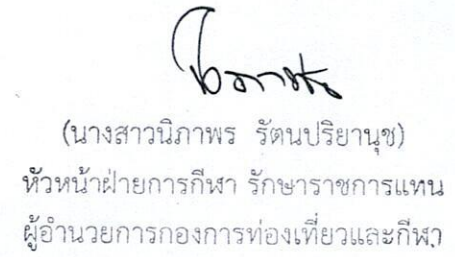 (นางสาวนิภาพร รัตนปริยานุช)
หัวหน้าฝ่ายการกีฬา รักษาราชการแทน
ผู้อำนวยการกองการท่องเที่ยวและกีฬา